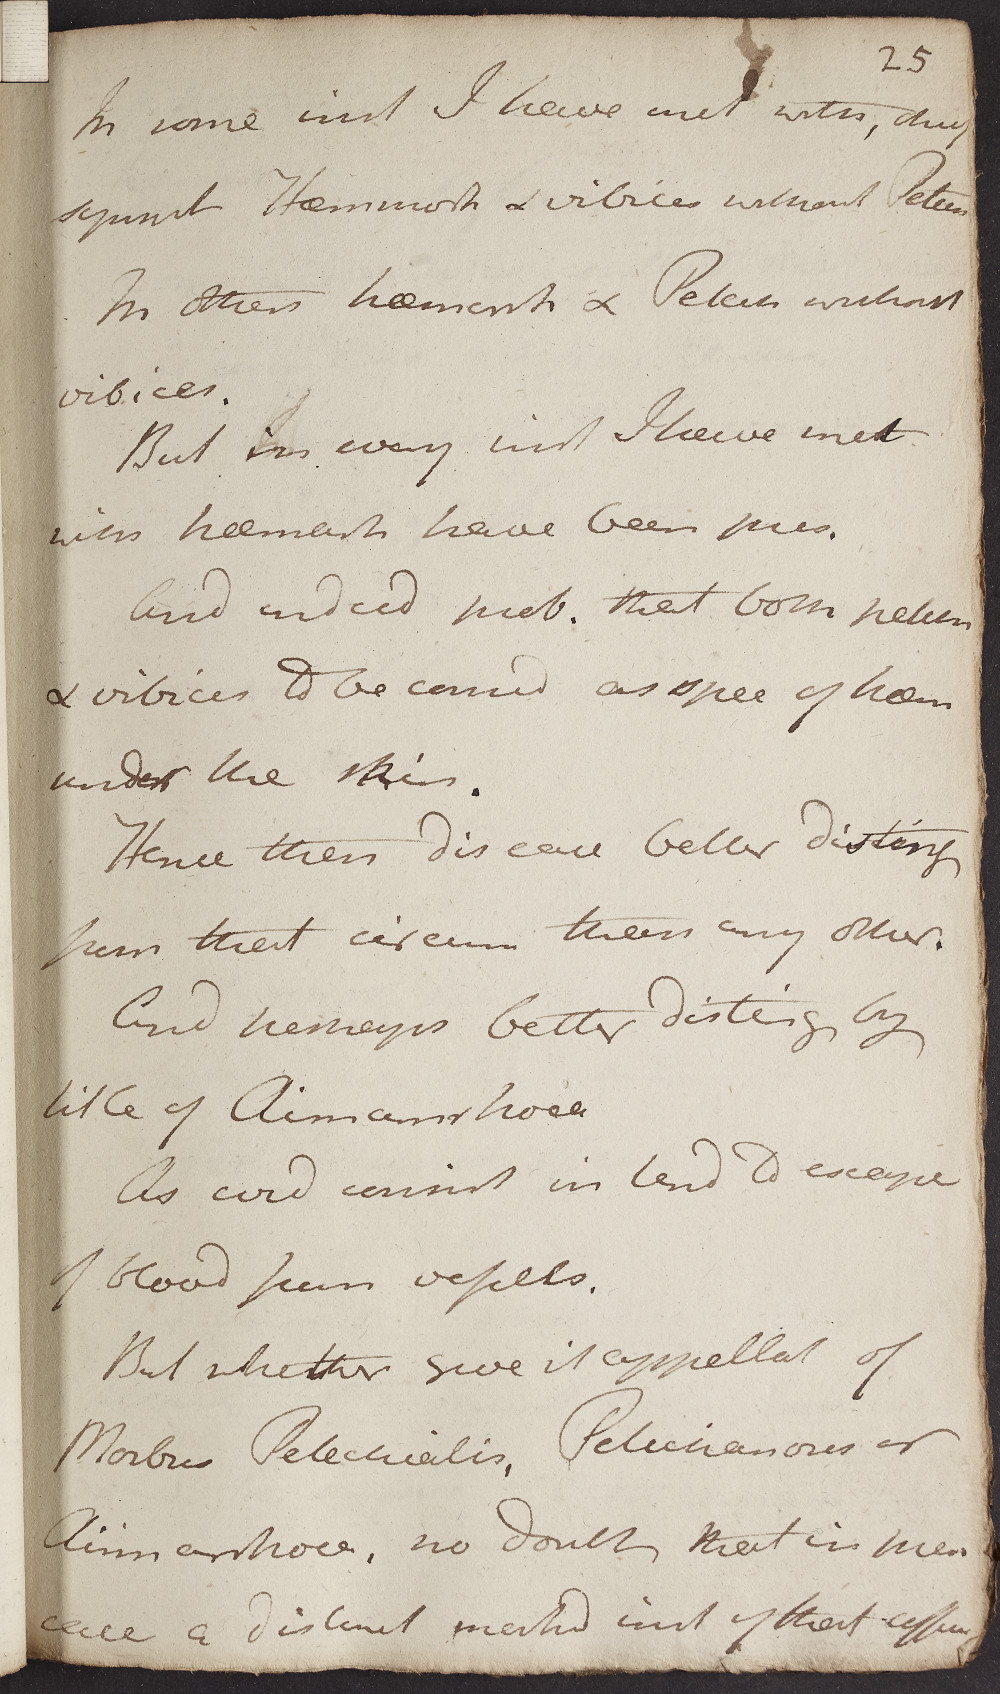 25
In some inst I have met with, diag
sympt Hæmmorh & vibices without Petech
In others hæmorrh & Petech without
vibices.
But in every inst I have met
with hæmorrh have been pres.
And indeed prob. that both petech
& vibices to be consid as spee of hæm
under the skin.
Hence then disease better disting
from that circum than any other.
And perhaps better disting by
title of Aimorrhoea
As cord consist in tend to escape
of blood from vessels.
But whether give it appellat of
Morbus Petechialis, Petechianosus or
Aimorrhoea, no doubt that in pres
case a distinct markd inst of that affec